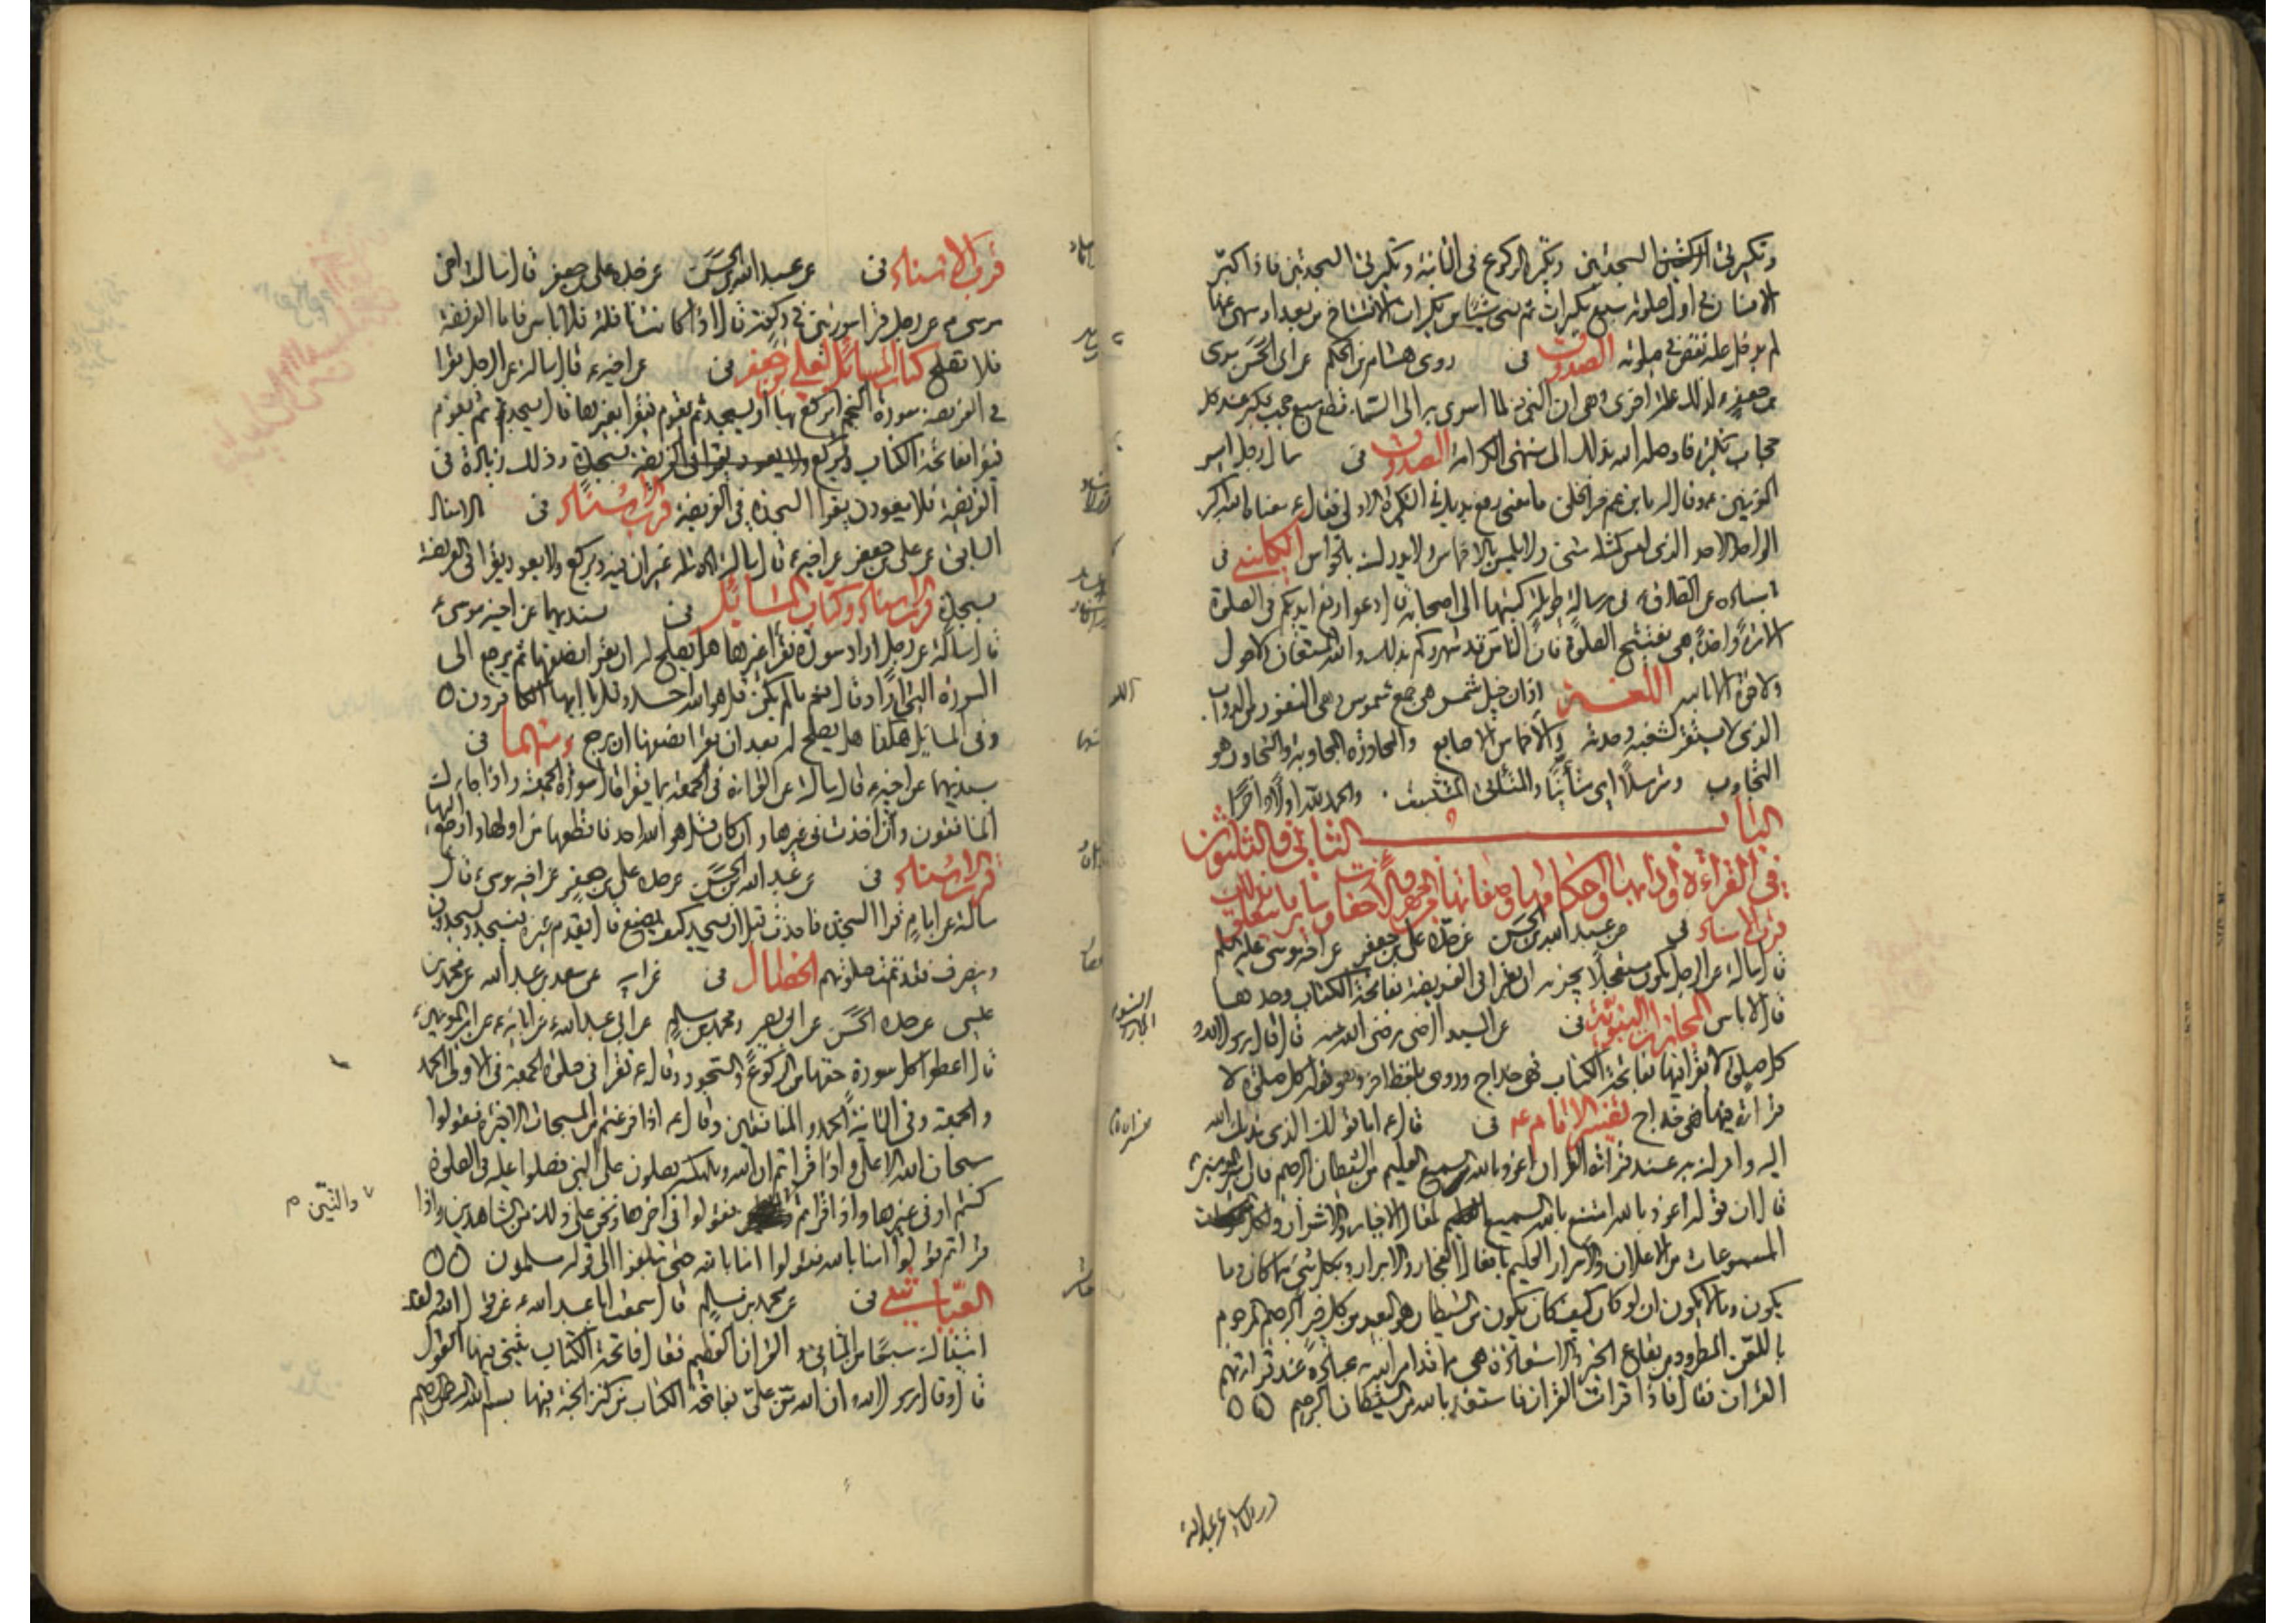 وتكبر في السجدتين وتكبر للركوع في الثانية وتكبر في السجدتين فاذا كبر
الانسان في اول صلوته سبع تكبيرات ثم نسي شيئا من تكبيرات الافتتاح من بعد او سهى عنها
لم يدخل عليه نقص في صلوته الصدوق في روى هشام بن الحكم عن ابي الحسن موسى
بن جعفر ع لذلك علة اخرى وهي ان النبي ص لما اسرى به الى السماء قطع سبع حجب فكبر عند كل
حجاب تكبيرة فاوصله الله بذلك الى منتهى الكرامة الصدوق في سال رجل امير
المؤمنين ع وقال له يابن عم خير الخلق ما معنى رفع يديك في التكبيرة الاولى فقال ع معناه الله اكبر
الواحد الاحد الذي ليس كمثله شئ ولا يلمس بالاخماس ولا يدرك بالحواس الكليني في
اسناده عن الصادق ع في رسالة طويلة كتبها الى اصحابه قال دعوا رفع ايديكم في الصلوة
الا مرة واحدة حين تفتتح الصلوة فان الناس قد شهروكم بذلك والله المستعان ولا حول
ولا قوة الا بالله اللغـــة اذان خيل شمس هي جمع شموس وهي النفور من الدواب
الذي لا يستقر لشغبه وحدته والاخماس الاصابع والمحاورة المجاوبة والتحاور هو
التجاوب وترسلا اي متأنيا والمتلقى المتثبت والحمد لله اولا واخرا
البـــاب الثاني والثلثون
في القراءة وآدابها واحكامها وصفاتها من الجهر والاخفات وساير ما يتعلق بذلك
قرب الاسناد في عن عبد الله بن الحسن عن جده علي بن جعفر عن اخيه موسى عليه السلم
قال سالته عن الرجل يكون مستعجلا يجزيه ان يقرا في الفريضة بفاتحة الكتاب وحدها
قال لا باس المجازات النبوية في عن السيد الرضي رضي الله عنه قال قال رسول الله ص
كل صلوة لا يقرا فيها بفاتحة الكتاب فهي خداج وروى بلفظ اخر وهو قوله كل صلوة لا
قراءة فيها فهي خداج تفسير الامام ع في قال ع اما قولك الذي ندبك الله
اليه وامرك به عند قراءة القران اعوذ بالله السميع العليم من الشيطان الرجيم فان امير المؤمنين ع
قال ان قوله اعوذ بالله امتنع بالله السميع لمقال الاخيار والاشرار ولكل
المسموعات من الاعلان والاسرار العليم بافعال الفجار والابرار وبكل شئ مما كان وما
يكون وما لا يكون ان لو كان كيف كان يكون من الشيطان هو البعيد من كل خير الرجيم المرجوم
باللعن المطرود من بقاع الخير والاستعاذة هي مما قد امر الله به عباده عند قراءتهم
القران فقال فاذا قرات القران فاستعذ بالله من الشيطان الرجيم
قرب الاسناد في عن عبد الله بن الحسن عن جده علي بن جعفر قال سالت اخي
موسى ع عن رجل قرا سورتين في ركعة قال اذا كانت نافلة فلا باس فاما الفريضة
فلا تصلح كتاب المسائل لعلي بن جعفر في عن اخيه ع قال سالته عن الرجل يقرا
في الفريضة سورة النجم ايركع بها او يسجد ثم يقوم فيقرا بغيرها قال يسجد ثم يقوم
فيقرا بفاتحة الكتاب ويركع ولا يعود يقرا في الفريضة بسجدة وذلك زيادة في
الفريضة فلا يعودن يقرا السجدة في الفريضة قرب الاسناد في الاسناد
السابق عن علي بن جعفر عن اخيه ع قال سالته مثله غير ان فيه ويركع ولا يعود يقرا في الفريضة
بسجدة قرب الاسناد وكتاب المسائل في بسنديهما عن اخيه موسى ع
قال سالته عن رجل اراد سورة فقرا غيرها هل يصلح له ان يقرا نصفها ثم يرجع الى
السورة التي اراد قال نعم ما لم يكن قل هو الله احد وقل يا ايها الكافرون
وفي المسايل هكذا هل يصلح له بعد ان يقرا نصفها ان يرجع ومنهما في
بسنديهما عن اخيه ع قال سالته عن القراءة في الجمعة بما يقرا قال سورة الجمعة واذا جاءك
المنافقون وان اخذت في غيرها وان كان قل هو الله احد فاقطعها من اولها وارجع اليها
قرب الاسناد في عن عبد الله بن الحسن عن جده علي بن جعفر عن اخيه موسى ع قال
سالته عن امام قرا السجدة فاحدث قبل ان يسجد كيف يصنع قال يقدم غيره فيسجد ويسجدون
وينصرف فقد تمت صلوتهم الخصال في عن ابيه عن سعد بن عبد الله عن محمد بن
عيسى عن جده الحسن عن ابي بصير ومحمد بن مسلم عن ابي عبد الله ع عن ابائه ع عن امير المؤمنين ع
قال اعطوا كل سورة حقها من الركوع والسجود وقال ع تقرا في صلوة الجمعة في الاولى الحمد
والجمعة وفي الثانية الحمد والمنافقين وقال ع اذا فرغتم من المسبحات الاخيرة فقولوا
سبحان الله الاعلى واذا قراتم ان الله وملائكته يصلون على النبي فصلوا عليه في الصلوة
كنتم او في غيرها واذا قراتم فقولوا في اخرها ونحن على ذلك من الشاهدين واذا
والتين م
قراتم قولوا امنا بالله فقولوا امنا بالله حتى تبلغوا الى قوله مسلمون
العياشي في عن محمد بن مسلم قال سمعت ابا عبد الله ع عن قول الله ولقد
اتيناك سبعا من المثاني والقران العظيم فقال فاتحة الكتاب يثنى فيها القول
قال وقال رسول الله ص ان الله من علي بفاتحة الكتاب من كنز الجنة فيها بسم الله الرحمن الرحيم